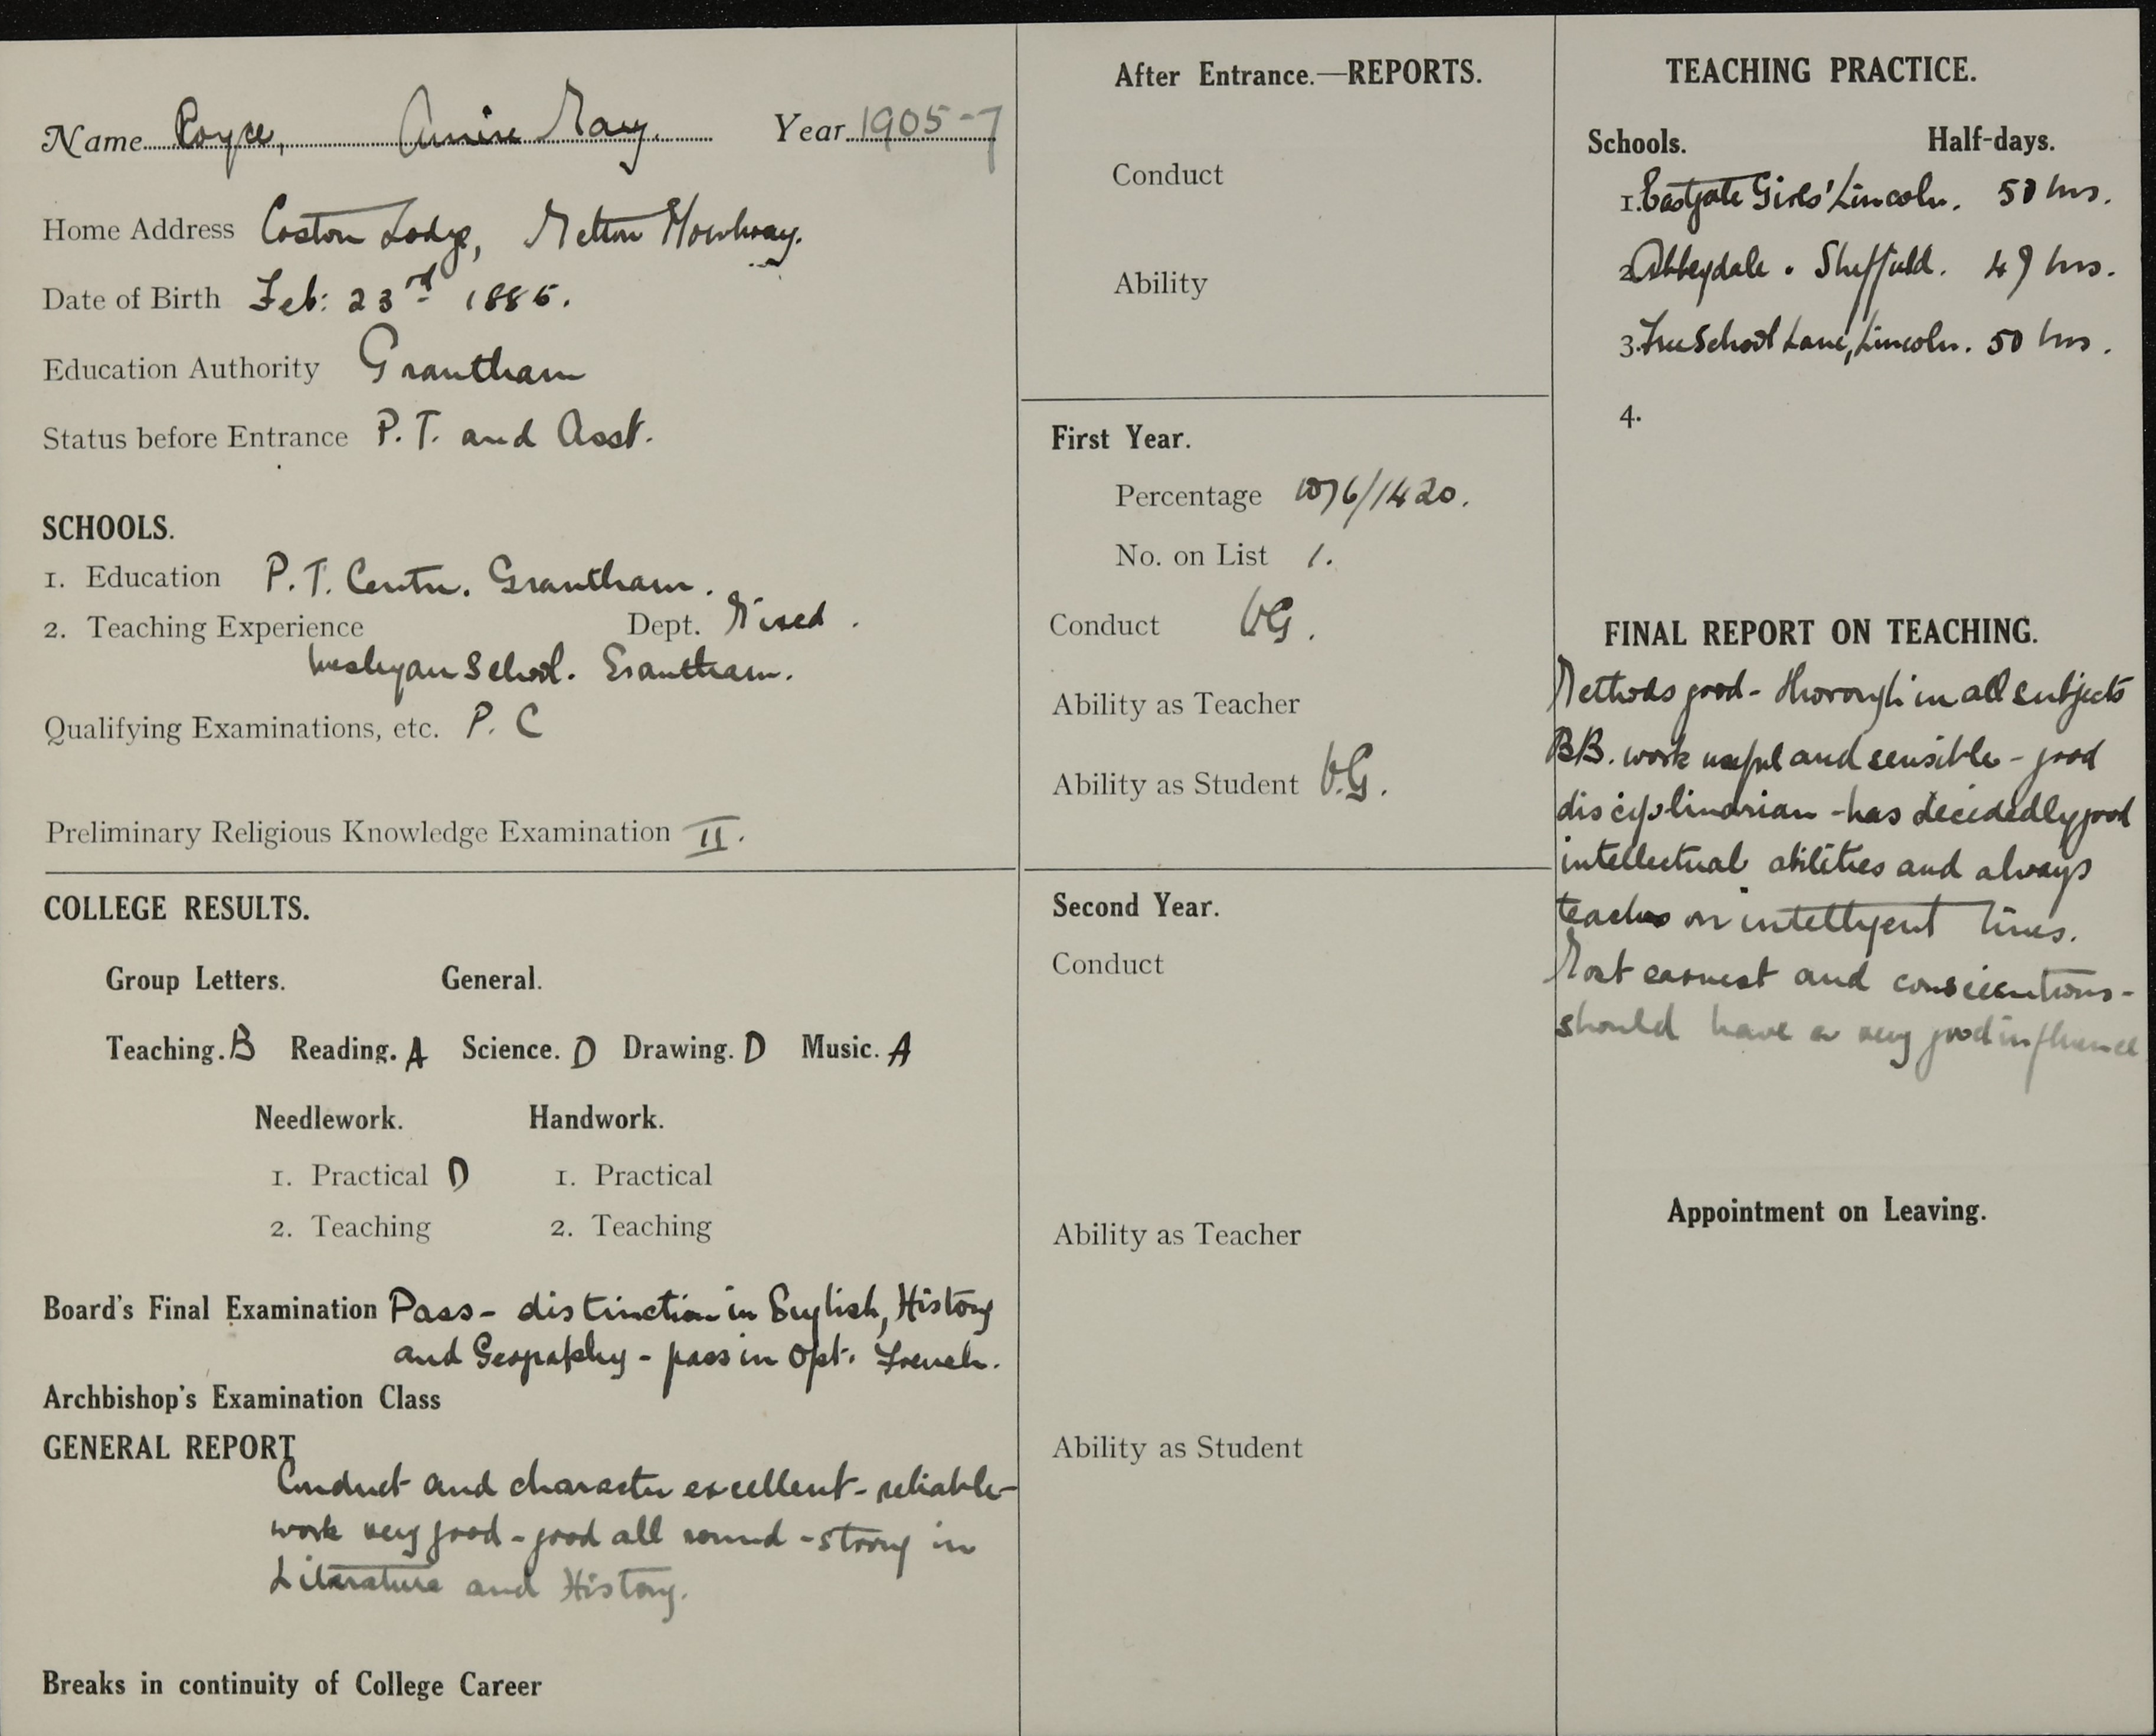 Name Royce, Annie May. Year 1905-7
Home Address Coston Lodge, Melton Mowbray.
Date of Birth Feb: 23rd 1885.
Education Authority Grantham
Status before Entrance P.T. and Asst.
SCHOOLS.
1. Education P.T. Centre. Grantham.
2. Teaching Experience Dept. Mixed.
Wesleyan School. Grantham.
Qualifying Examinations, etc. P.C
Preliminary Religious Knowledge Examination II.
COLLEGE RESULTS.
Group Letters. General.
Teaching. B Reading. A Science. D Drawing. D Music. A
Needlework. Handwork.
1. Practical D 1. Practical
2. Teaching 2. Teaching
Board's Final Examination Pass - distinction in English, History
and Geography - pass in Opt. French.
Archbishop's Examination Class
GENERAL REPORT
Conduct and character excellent - reliable -
work very good - good all round - strong in
Literature and History.
Breaks in continuity of College Career
After Entrance.—REPORTS.
Conduct
Ability
First Year.
Percentage 1076/1420.
No. on List 1.
Conduct VG.
Ability as Teacher
Ability as Student V.G.
Second Year.
Conduct
Ability as Teacher
Ability as Student
TEACHING PRACTICE.
Schools. Half-days.
1. Eastgate Girls' Lincoln. 50 hrs.
2. Abbeydale. Sheffield. 49 hrs.
3. Free School Lane, Lincoln. 50 hrs.
4.
FINAL REPORT ON TEACHING.
Methods good - thorough in all subjects
BB. work useful and sensible - good
disciplinarian - has decidedly good
intellectual abilities and always
teaches on intelligent lines.
Most earnest and conscientious -
should have a very good influence
Appointment on Leaving.